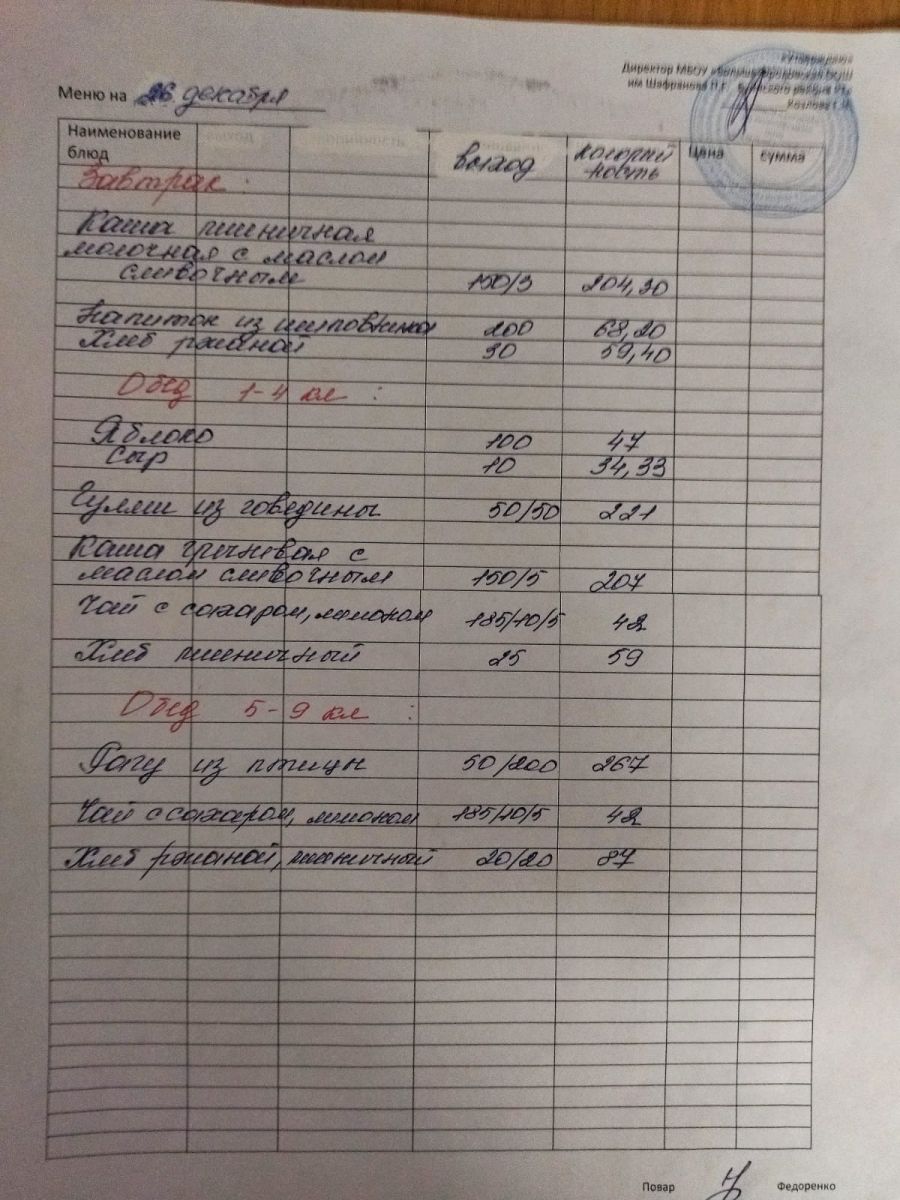 «Утверждаю»
Директор МБОУ
им Шафранова П.Г.
Козлова Г.И.
Меню на 26 декабря
Наименование блюд выход калорий Цена сумма
-ность
Завтрак :
Каша пшеничная
молочная с маслом
сливочным 150/3 204,30
Напиток из шиповника 200 68,20
Хлеб ржаной 30 59,40
Обед 1-4 кл :
Яблоко 100 47
Сыр 10 34,33
Гуляш из говедины 50/50 221
Каша гречневая с
маслом сливочным 150/5 207
Чай с сахаром, лимоном 185/10/5 42
Хлеб пшеничный 25 59
Обед 5-9 кл :
Рагу из птицы 50/200 267
Чай с сахаром, лимоном 185/10/5 42
Хлеб ржаной, пшеничный 20/20 87
Повар Федоренко